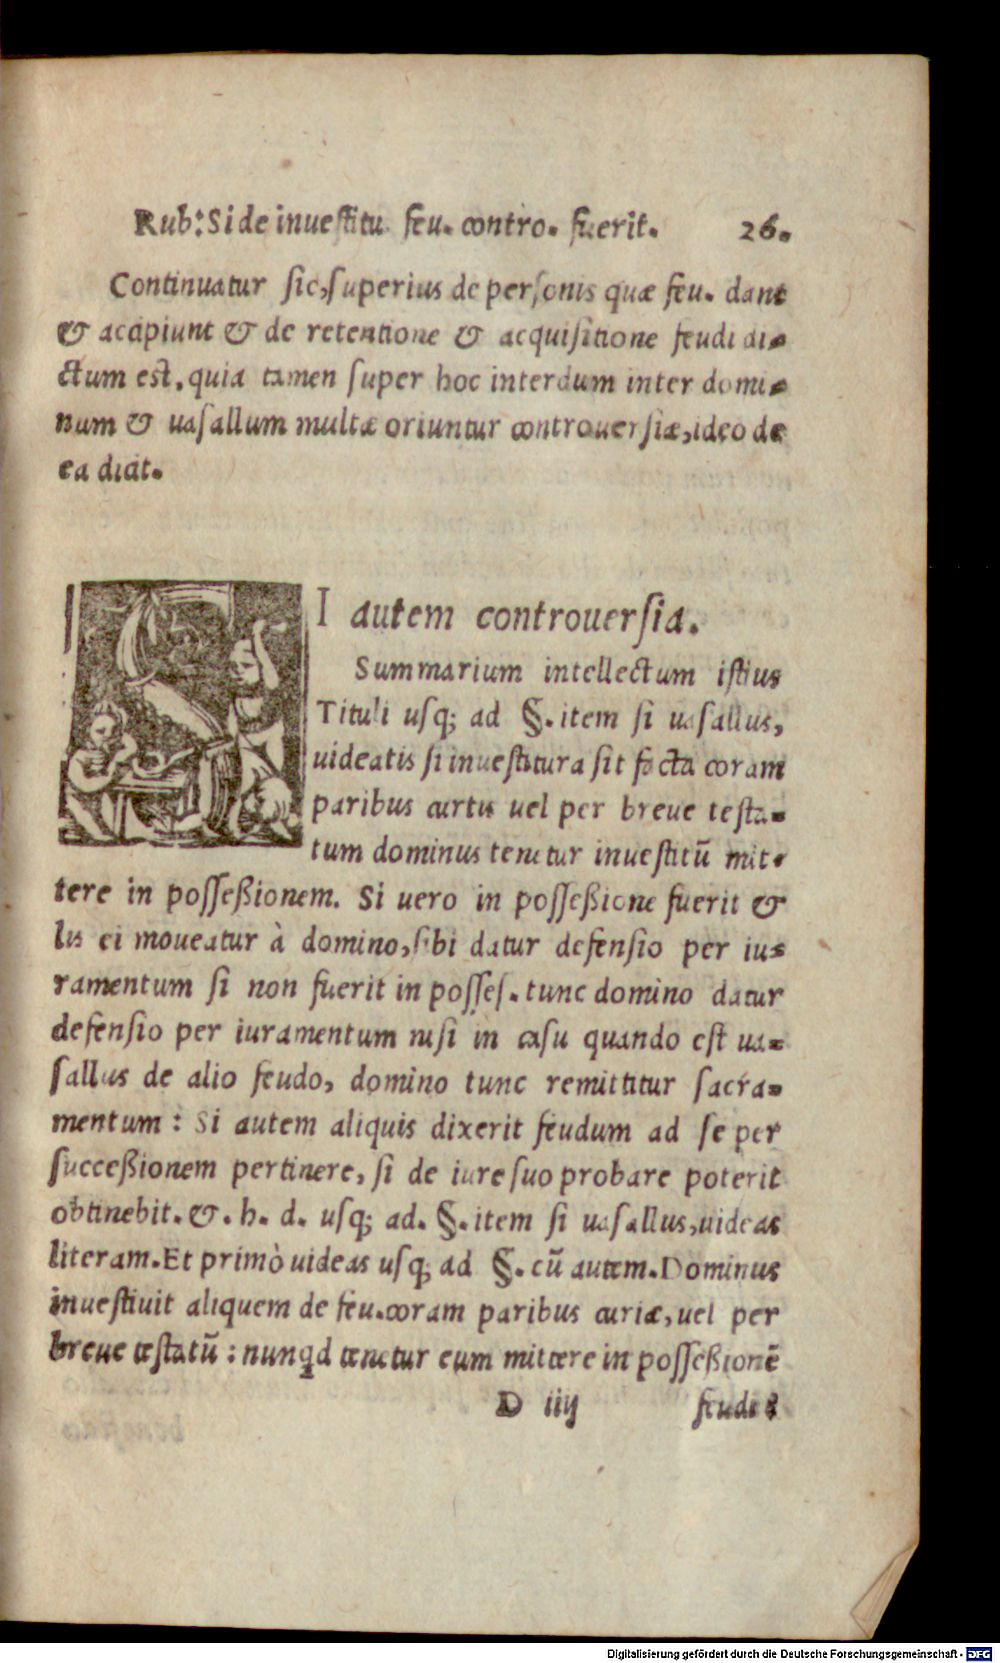 Rub: Si de inuestitu feu. contro. fuerit. 26.
Continuatur sic, superius de personis quæ feu. dant
& accipiunt & de retentione & acquisitione feudi di-
ctum est, quia tamen super hoc interdum inter domi-
num & uasallum multæ oriuntur controuersiæ, ideo de
ea dicit.
SI autem controuersia.
Summarium intellectum istius
Tituli usq; ad §. item si uasallus,
uideatis si inuestitura sit facta coram
paribus curtis uel per breue testa-
tum dominus tenetur inuestitū mit-
tere in posseßionem. Si uero in posseßione fuerit &
lis ei moueatur à domino, sibi datur defensio per iu-
ramentum si non fuerit in posses. tunc domino datur
defensio per iuramentum nisi in casu quando est ua-
sallus de alio feudo, domino tunc remittitur sacra-
mentum: Si autem aliquis dixerit feudum ad se per
succeßionem pertinere, si de iure suo probare poterit
obtinebit. &. h. d. usq; ad. §. item si uasallus, uideas
literam. Et primò uideas usq; ad §. cū autem. Dominus
inuestiuit aliquem de feu. coram paribus curiæ, uel per
breue testatū: nunqd tenetur eum mittere in posseßionē
D iiij feudi?
Digitalisierung gefördert durch die Deutsche Forschungsgemeinschaft - DFG